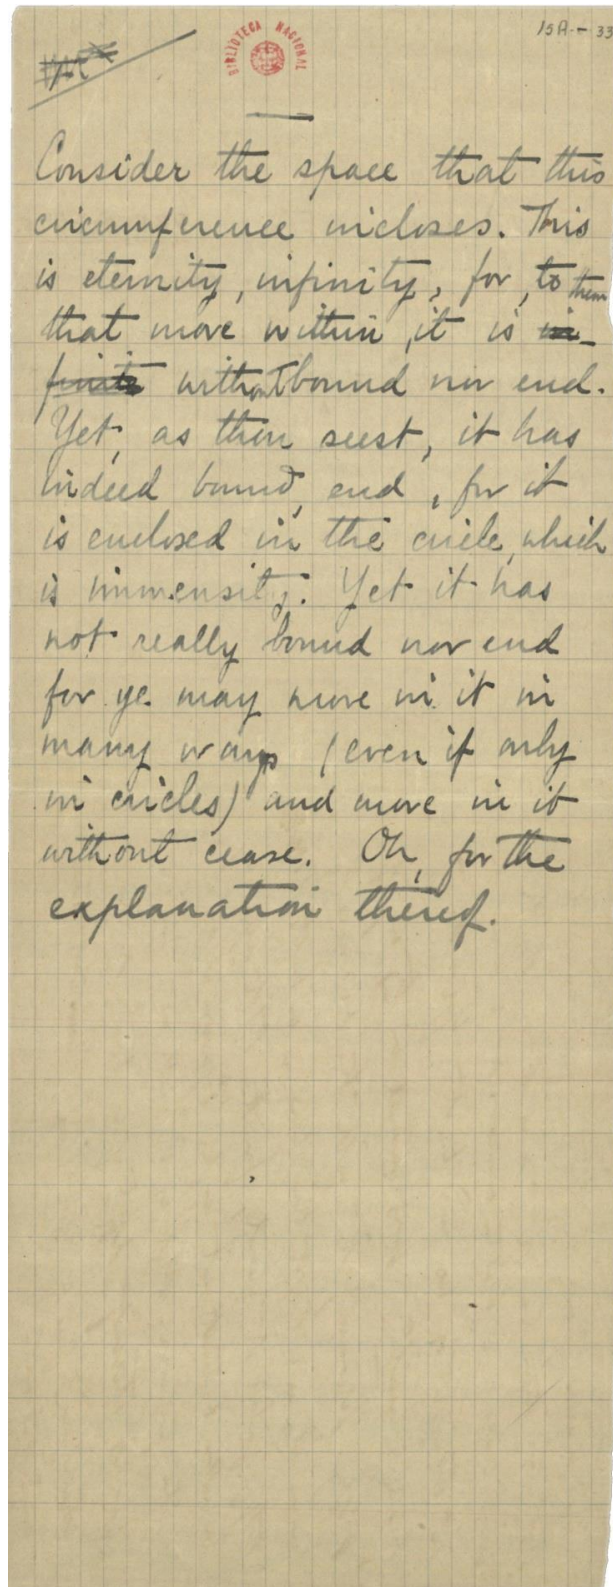 15A - 33
BIBLIOTECA NACIONAL
Consider the space that this
circumference incloses. This
is eternity, infinity, for, to them
that move within, it is in-
finite without bound nor end.
Yet, as thou seest, it has
indeed bound, end, for it
is enclosed in the circle, which
is immensity. Yet it has
not really bound nor end
for ye may move in it in
many ways (even if only
in circles) and move in it
without cease. Oh, for the
explanation thereof.